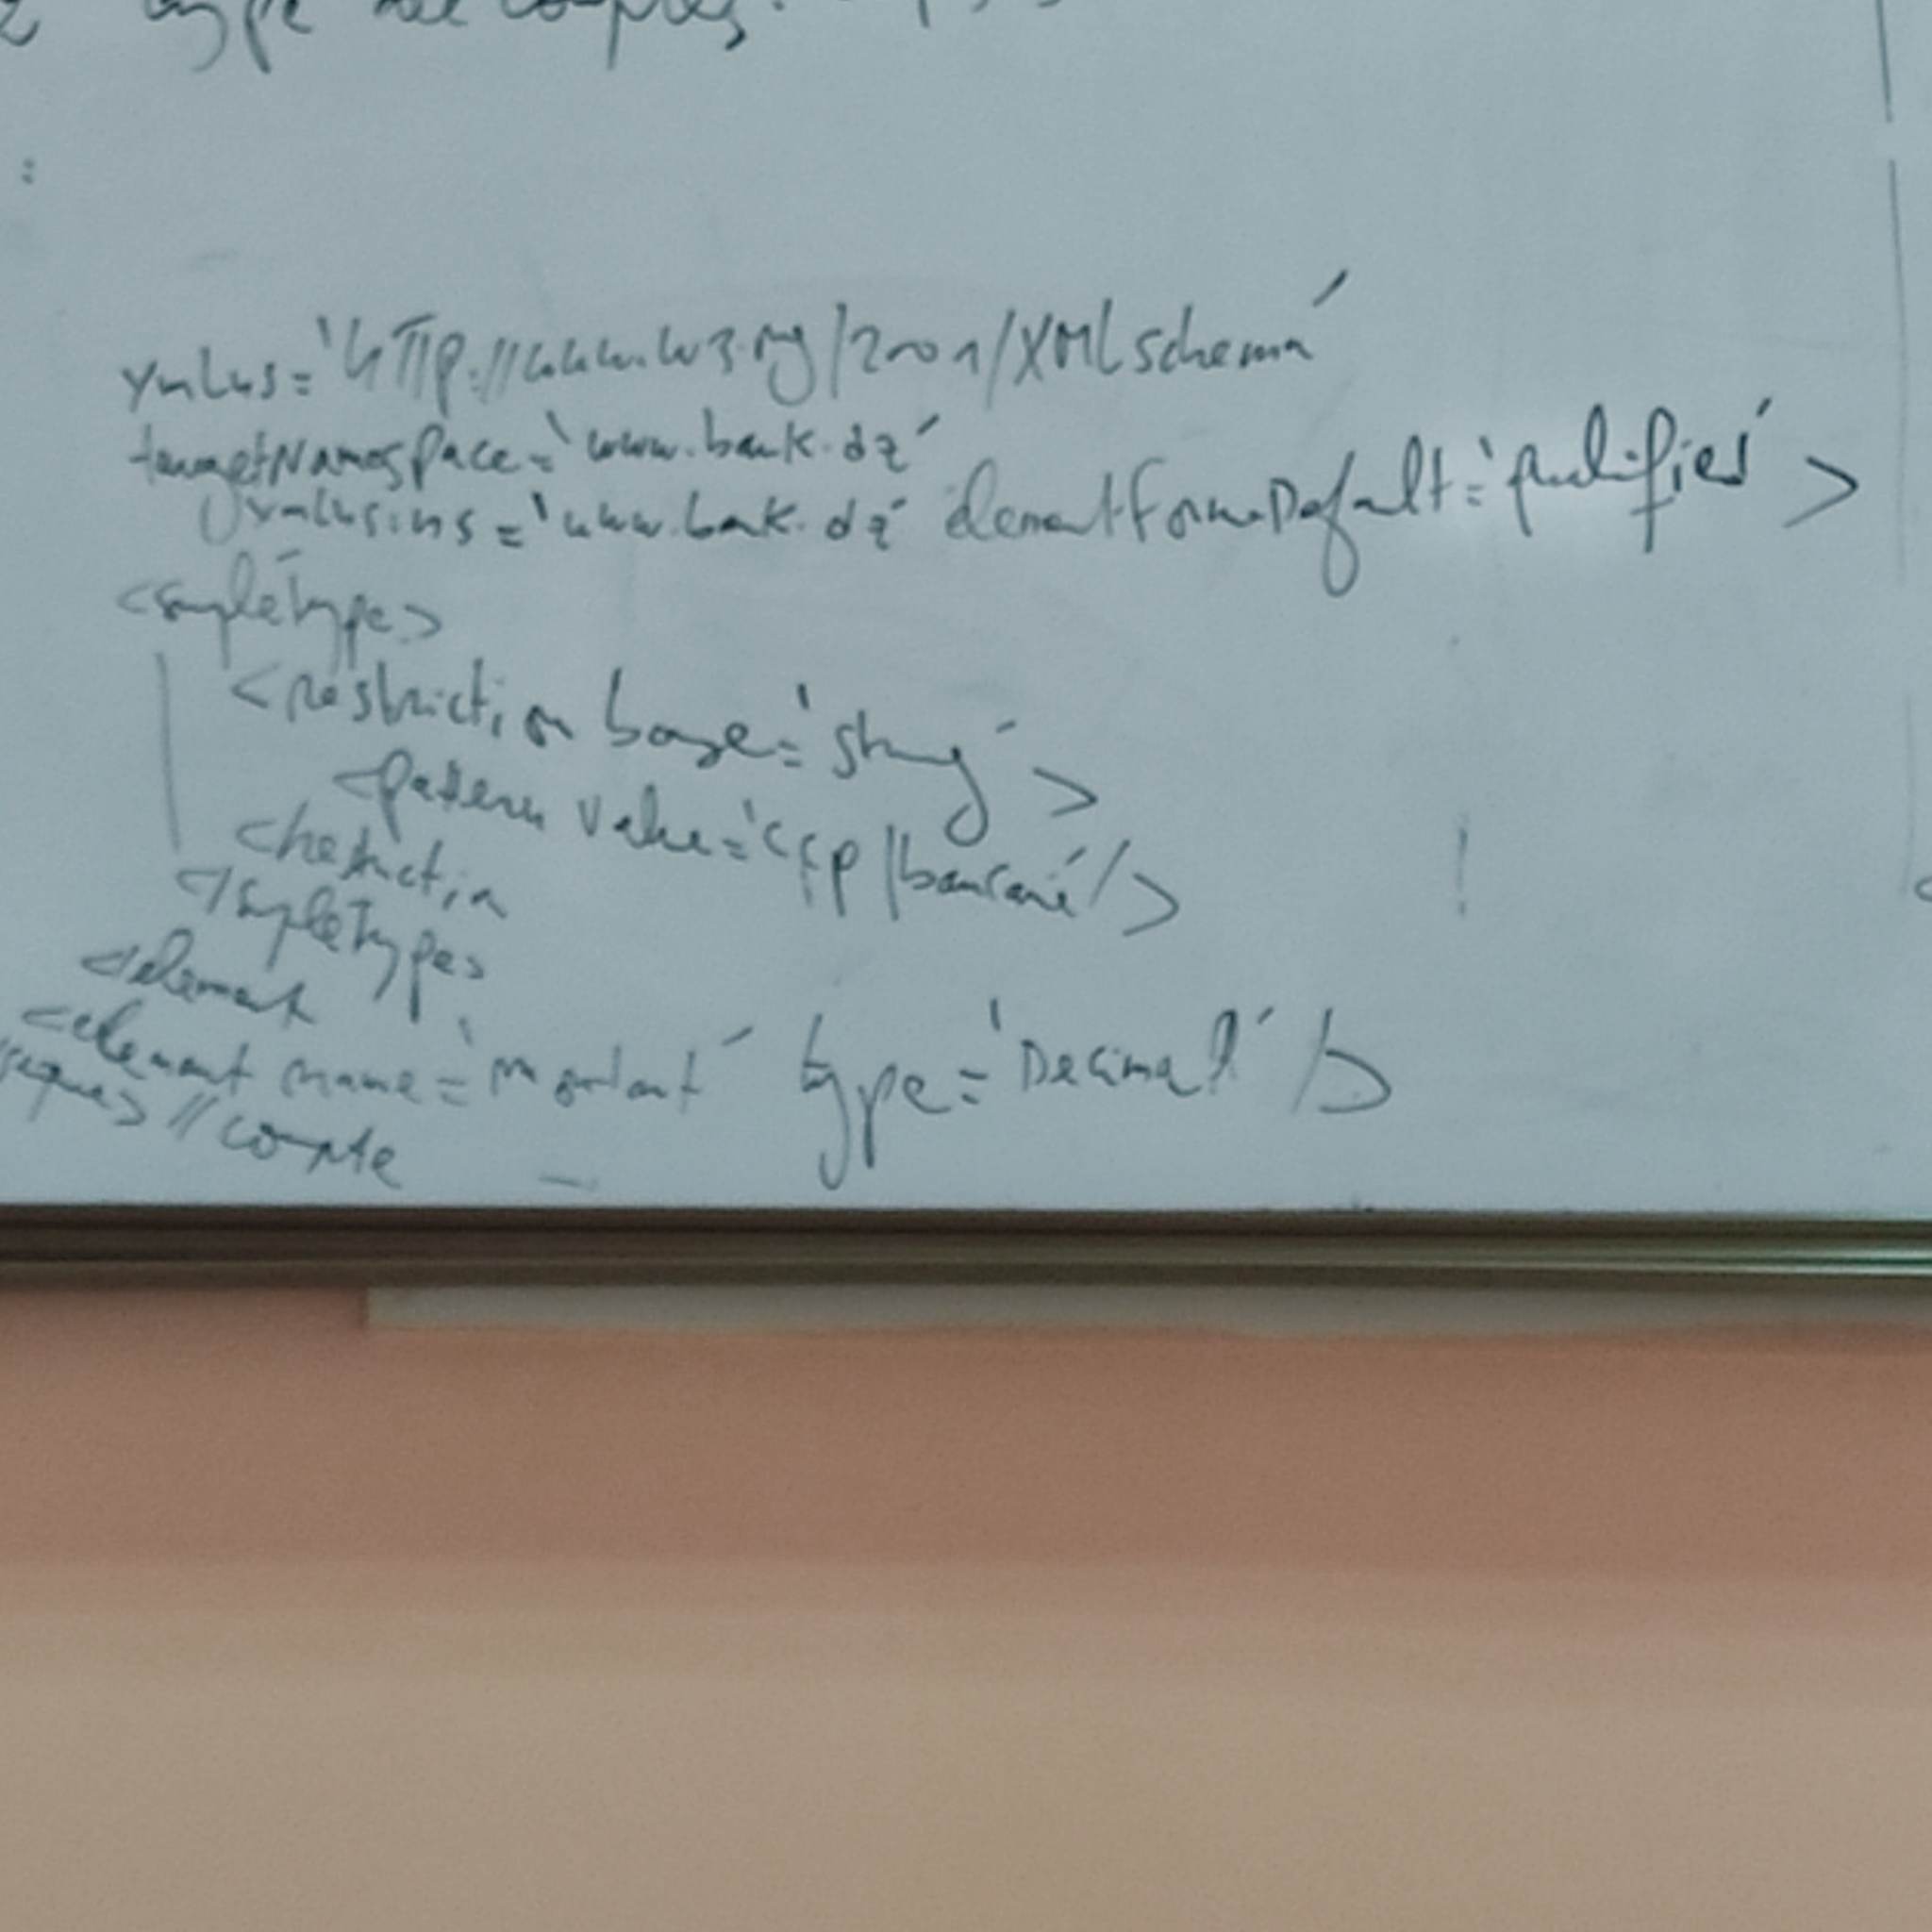 type
:
xmlns='http://www.w3.org/2001/XMLschema'
targetNamespace='www.bank.dz'
xmlns:ns='www.bank.dz' elementFormDefalt='qualified'>
<simpleType>
<restriction base='string'>
<pattern value='ccp|bancaire'/>
</restriction
</simpleType>
</element
<element name='montant' type='Decimal'/>
//compte